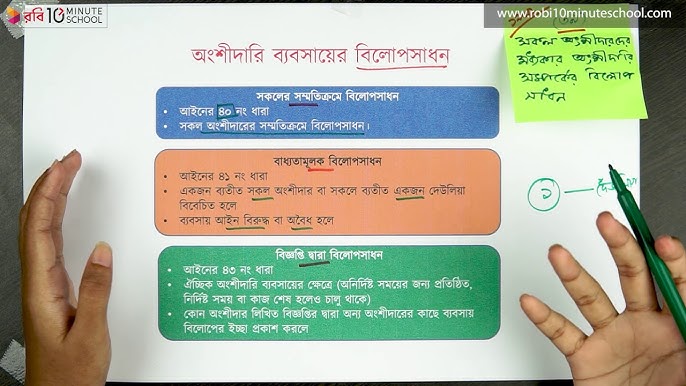 রবি 10 MINUTE SCHOOL
www.robi10minuteschool.com
সকল অংশীদারদের
মধ্যকার অংশীদারি
সম্পর্কের বিলোপ
সাধন
অংশীদারি ব্যবসায়ের বিলোপসাধন
সকলের সম্মতিক্রমে বিলোপসাধন
• আইনের ৪০ নং ধারা
• সকল অংশীদারের সম্মতিক্রমে বিলোপসাধন।
বাধ্যতামূলক বিলোপসাধন
• আইনের ৪১ নং ধারা
• একজন ব্যতীত সকল অংশীদার বা সকলে ব্যতীত একজন দেউলিয়া
বিবেচিত হলে
• ব্যবসায় আইন বিরুদ্ধ বা অবৈধ হলে
১
বিজ্ঞপ্তি দ্বারা বিলোপসাধন
• আইনের ৪৩ নং ধারা
• ঐচ্ছিক অংশীদারি ব্যবসায়ের ক্ষেত্রে (অনির্দিষ্ট সময়ের জন্য প্রতিষ্ঠিত,
নির্দিষ্ট সময় বা কাজ শেষ হলেও চালু থাকে)
• কোন অংশীদার লিখিত বিজ্ঞপ্তির দ্বারা অন্য অংশীদারের কাছে ব্যবসায়
বিলোপের ইচ্ছা প্রকাশ করলে